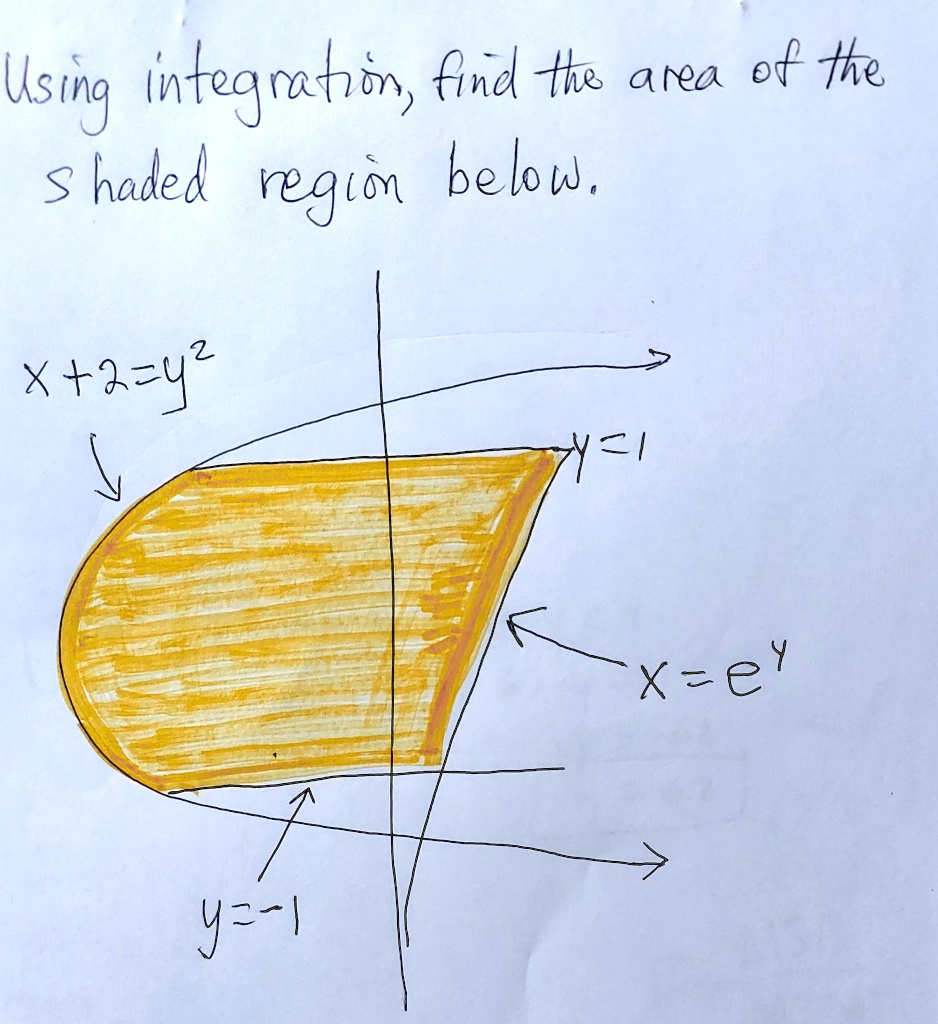 Using integration, find the area of the
shaded region below.
x+2=y²
y=1
x=eʸ
y=-1